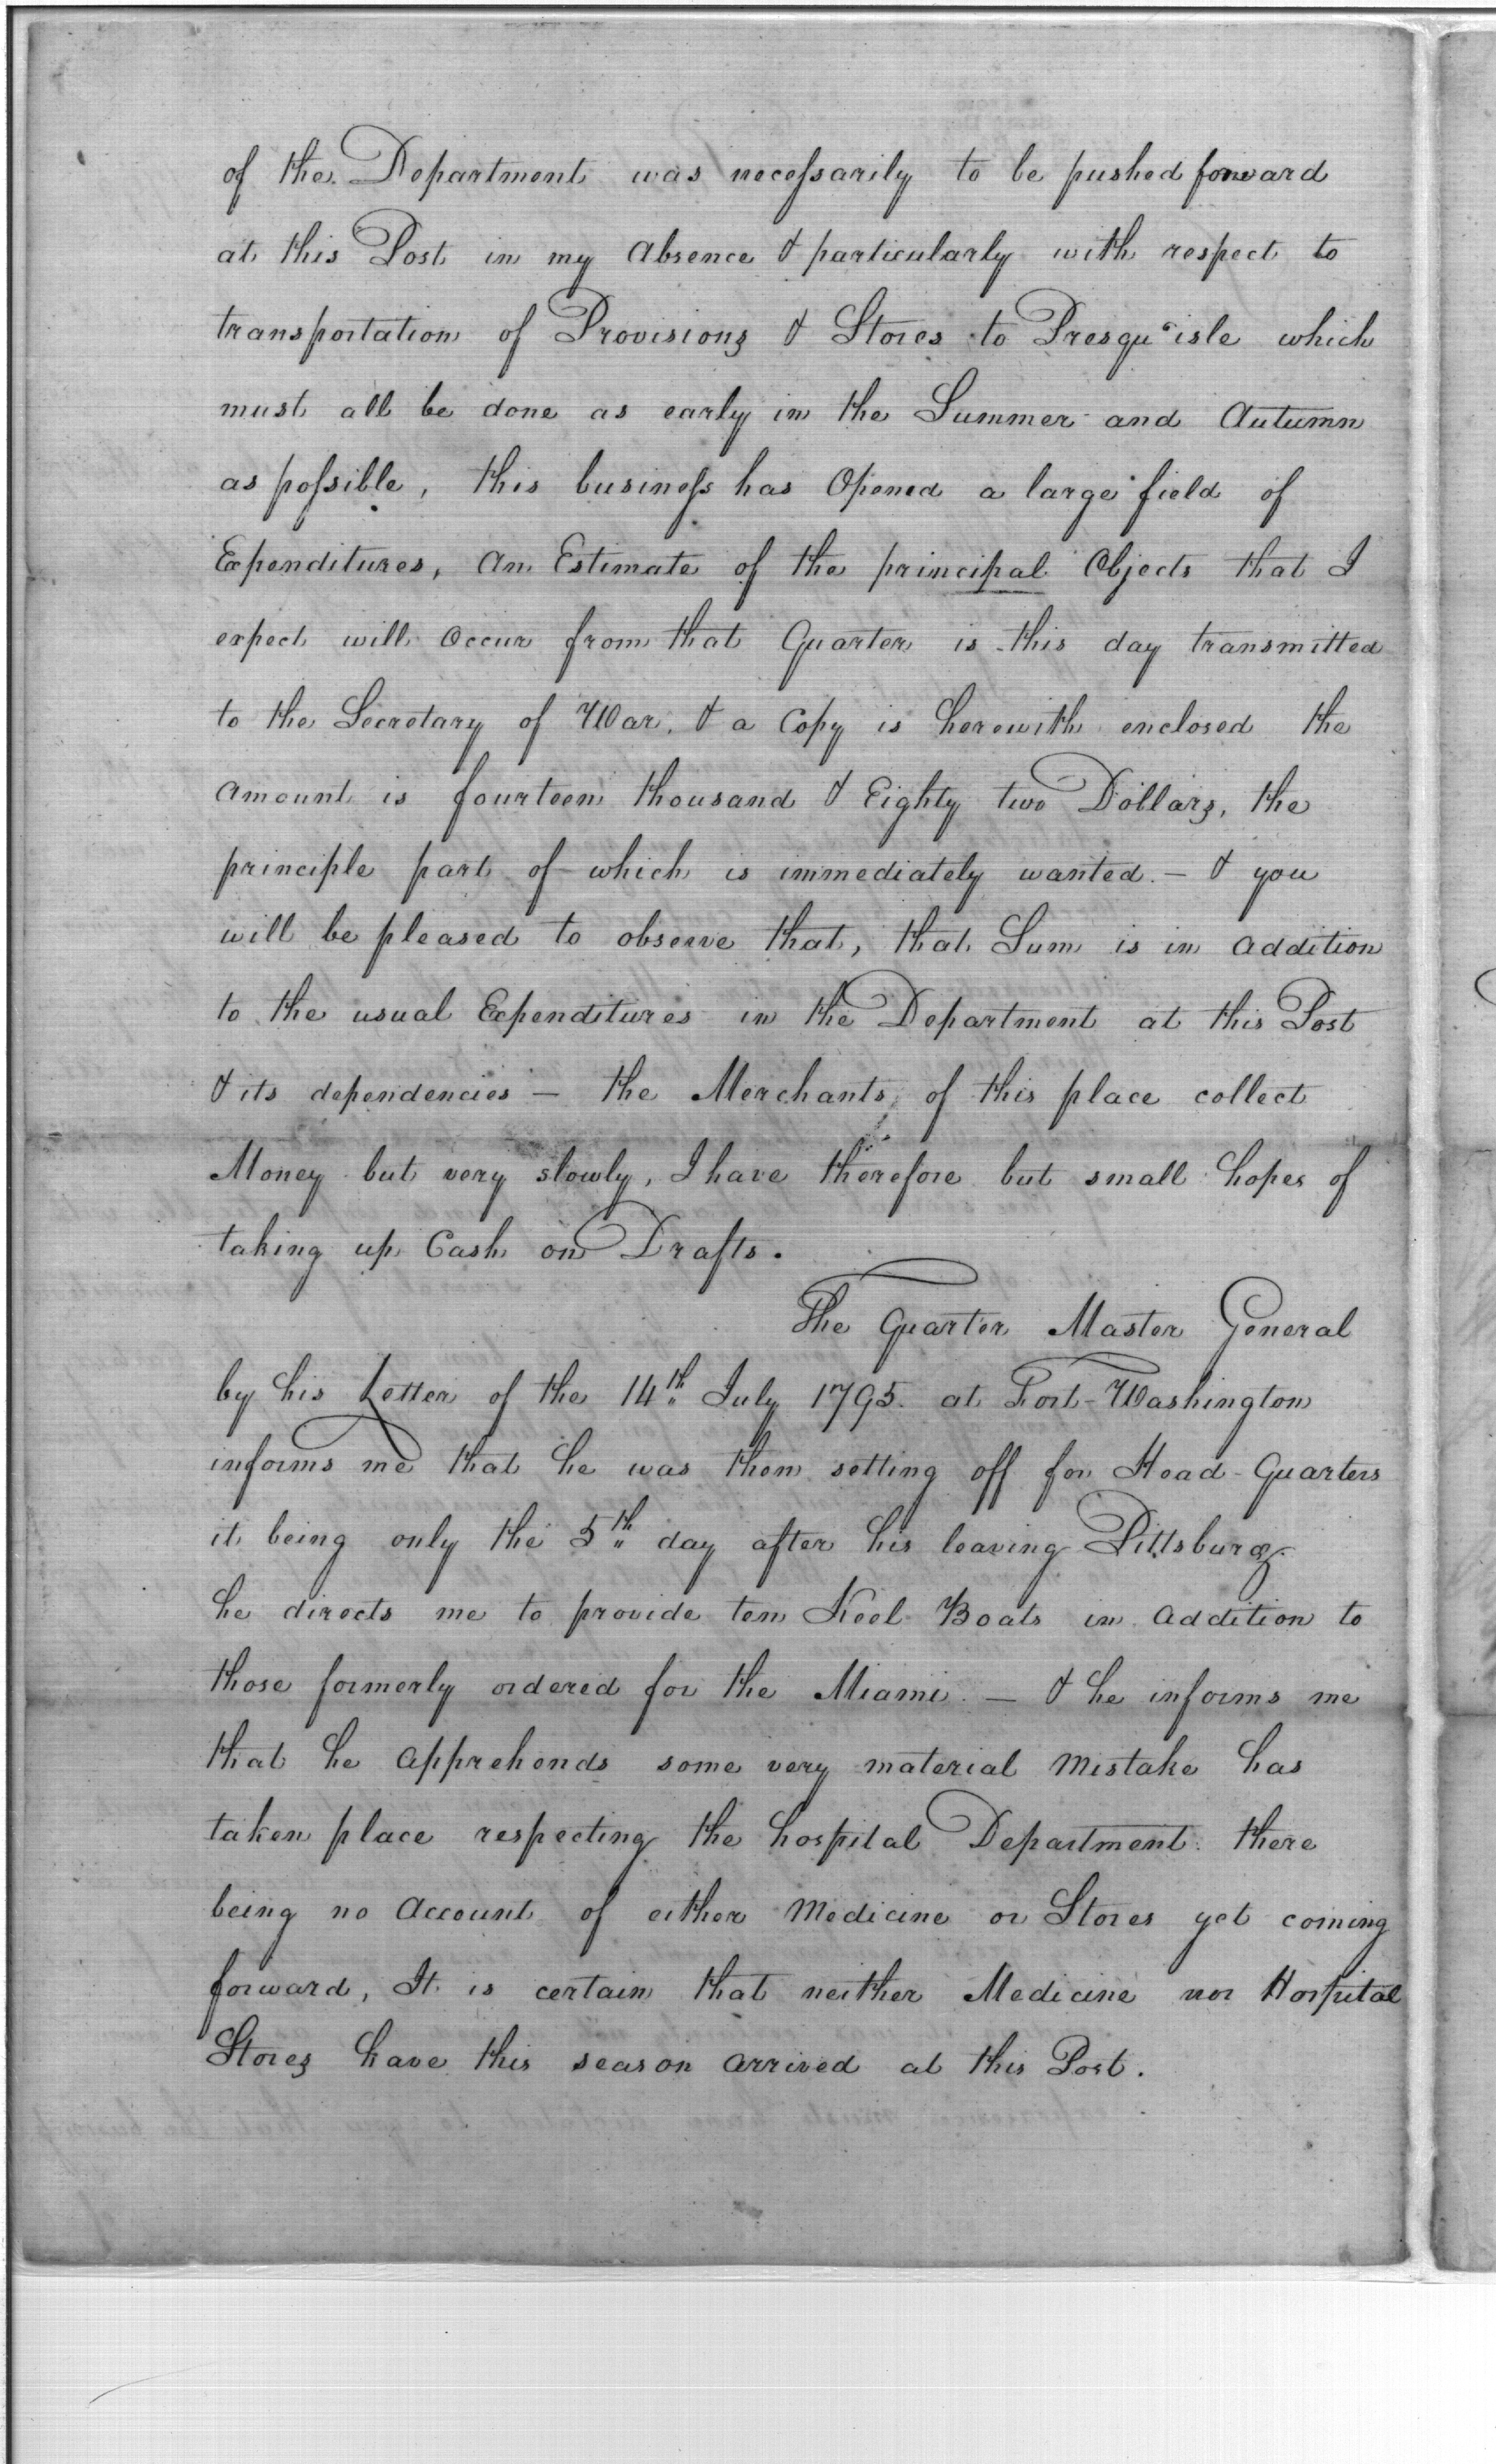 of the Department was necessarily to be pushed forward
at this Post in my Absence & particularly with respect to
transportation of Provisions & Stores to Presqu'isle which
must all be done as early in the Summer and Autumn
as possible, this business has Opened a large field of
Expenditures, An Estimate of the principal Objects that I
expect will Occur from that Quarter is this day transmitted
to the Secretary of War, & a Copy is herewith enclosed the
Amount is fourteen thousand & Eighty two Dollars, the
principle part of which is immediately wanted. – & you
will be pleased to observe that, that Sum is in addition
to the usual Expenditures in the Department at this Post
& its dependencies – the Merchants, of this place collect
Money but very slowly, I have therefore but small hopes of
taking up Cash on Drafts.
The Quarter Master General
by his Letter of the 14th July 1795. at Fort-Washington
informs me that he was then setting off for Head-Quarters
it being only the 5th day after his leaving Pittsburg.
he directs me to provide ten Keel Boats in Addition to
those formerly ordered for the Miami. – & he informs me
that he Apprehends some very material Mistake has
taken place respecting the hospital Department. there
being no Account of either Medicine or Stores yet coming
forward, It is certain that neither Medicine nor Hospital
Stores have this season Arrived at this Post.